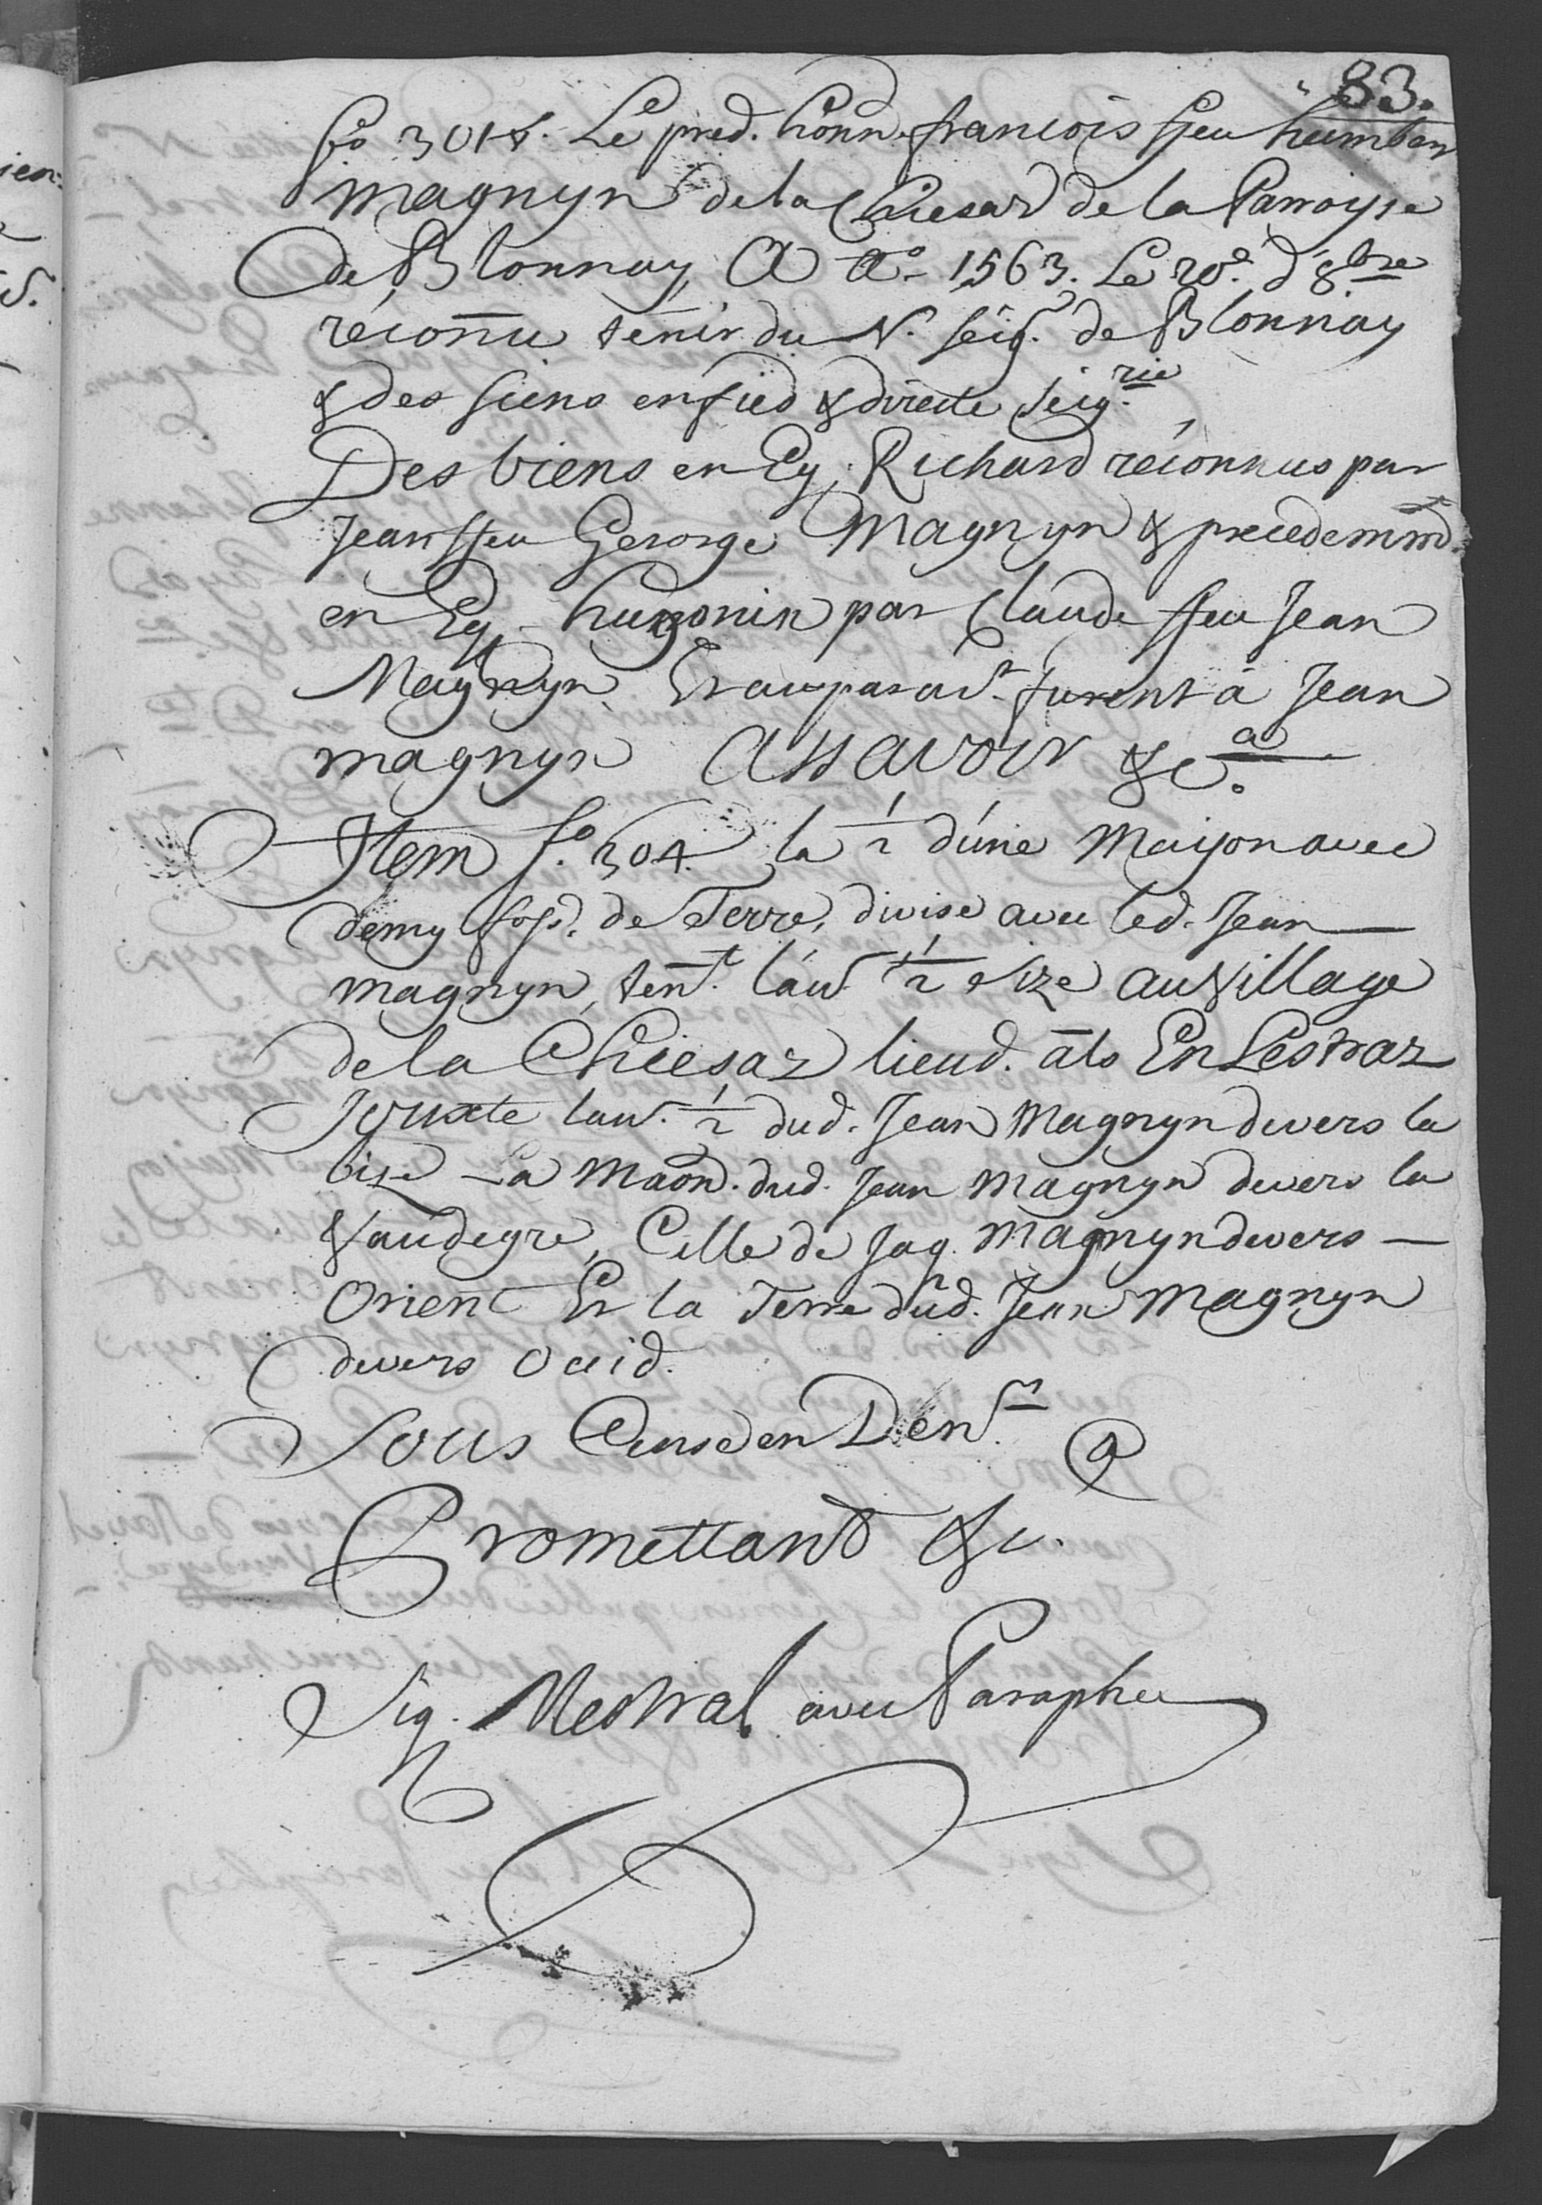 83.
fo 301 v. Le pred. honn. francois ffeu humbert
magnyn de la Chiesaz de la Parroisse
de Blonnay, A Ao. 1563. Le 20e. d 8bre
réconnu tenir du N. seigr. de Blonnay
& des siens en fied & directe Seigrie
Des biens en Eg. Richard réconnus par
Jean ffeu George Magnyn & precedemmt
en Eg. hugonin par Claude ffeu Jean
Magnyn Et auparavt. furent à Jean
magnyn Assavoir &ca.
Item fo. 304 la 1/2 d'une Maison avec
demy fosd. de Terre, divise avec led. Jean
magnyn, tent. l'autr. 1/2 size au Village
de la Chiesaz lieud. als En Lestraz
Jouxte lautr. 1/2 dud. Jean Magnyn devers la
bize La Maon. dud. Jean Magnyn devers la
Vaudeyre, Celle de Jaq. Magnyn devers
Orient Et la Terre dud. Jean Magnyn
devers Occid.
Sous Cense en Denrs
Promettant &c.
Sig. Mestral avec Paraphe
ien:
5.